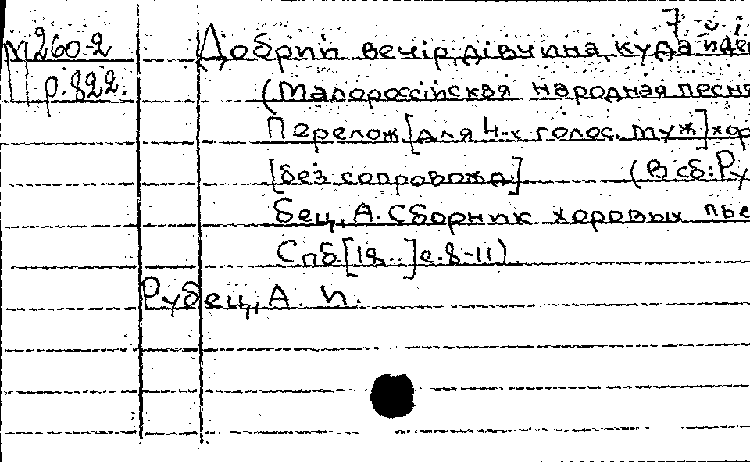 М260-2
р.822.
Добрий вечір, дівчина, куда йде
(Малороссійская народная песня
Перелож. [для 4-х голос. муж.] хор
[без сопровожд.] (В сб.: Ру
бец, А. Сборник хоровых пье
Спб. [18..] с. 8-11)
Рубец, А. И.